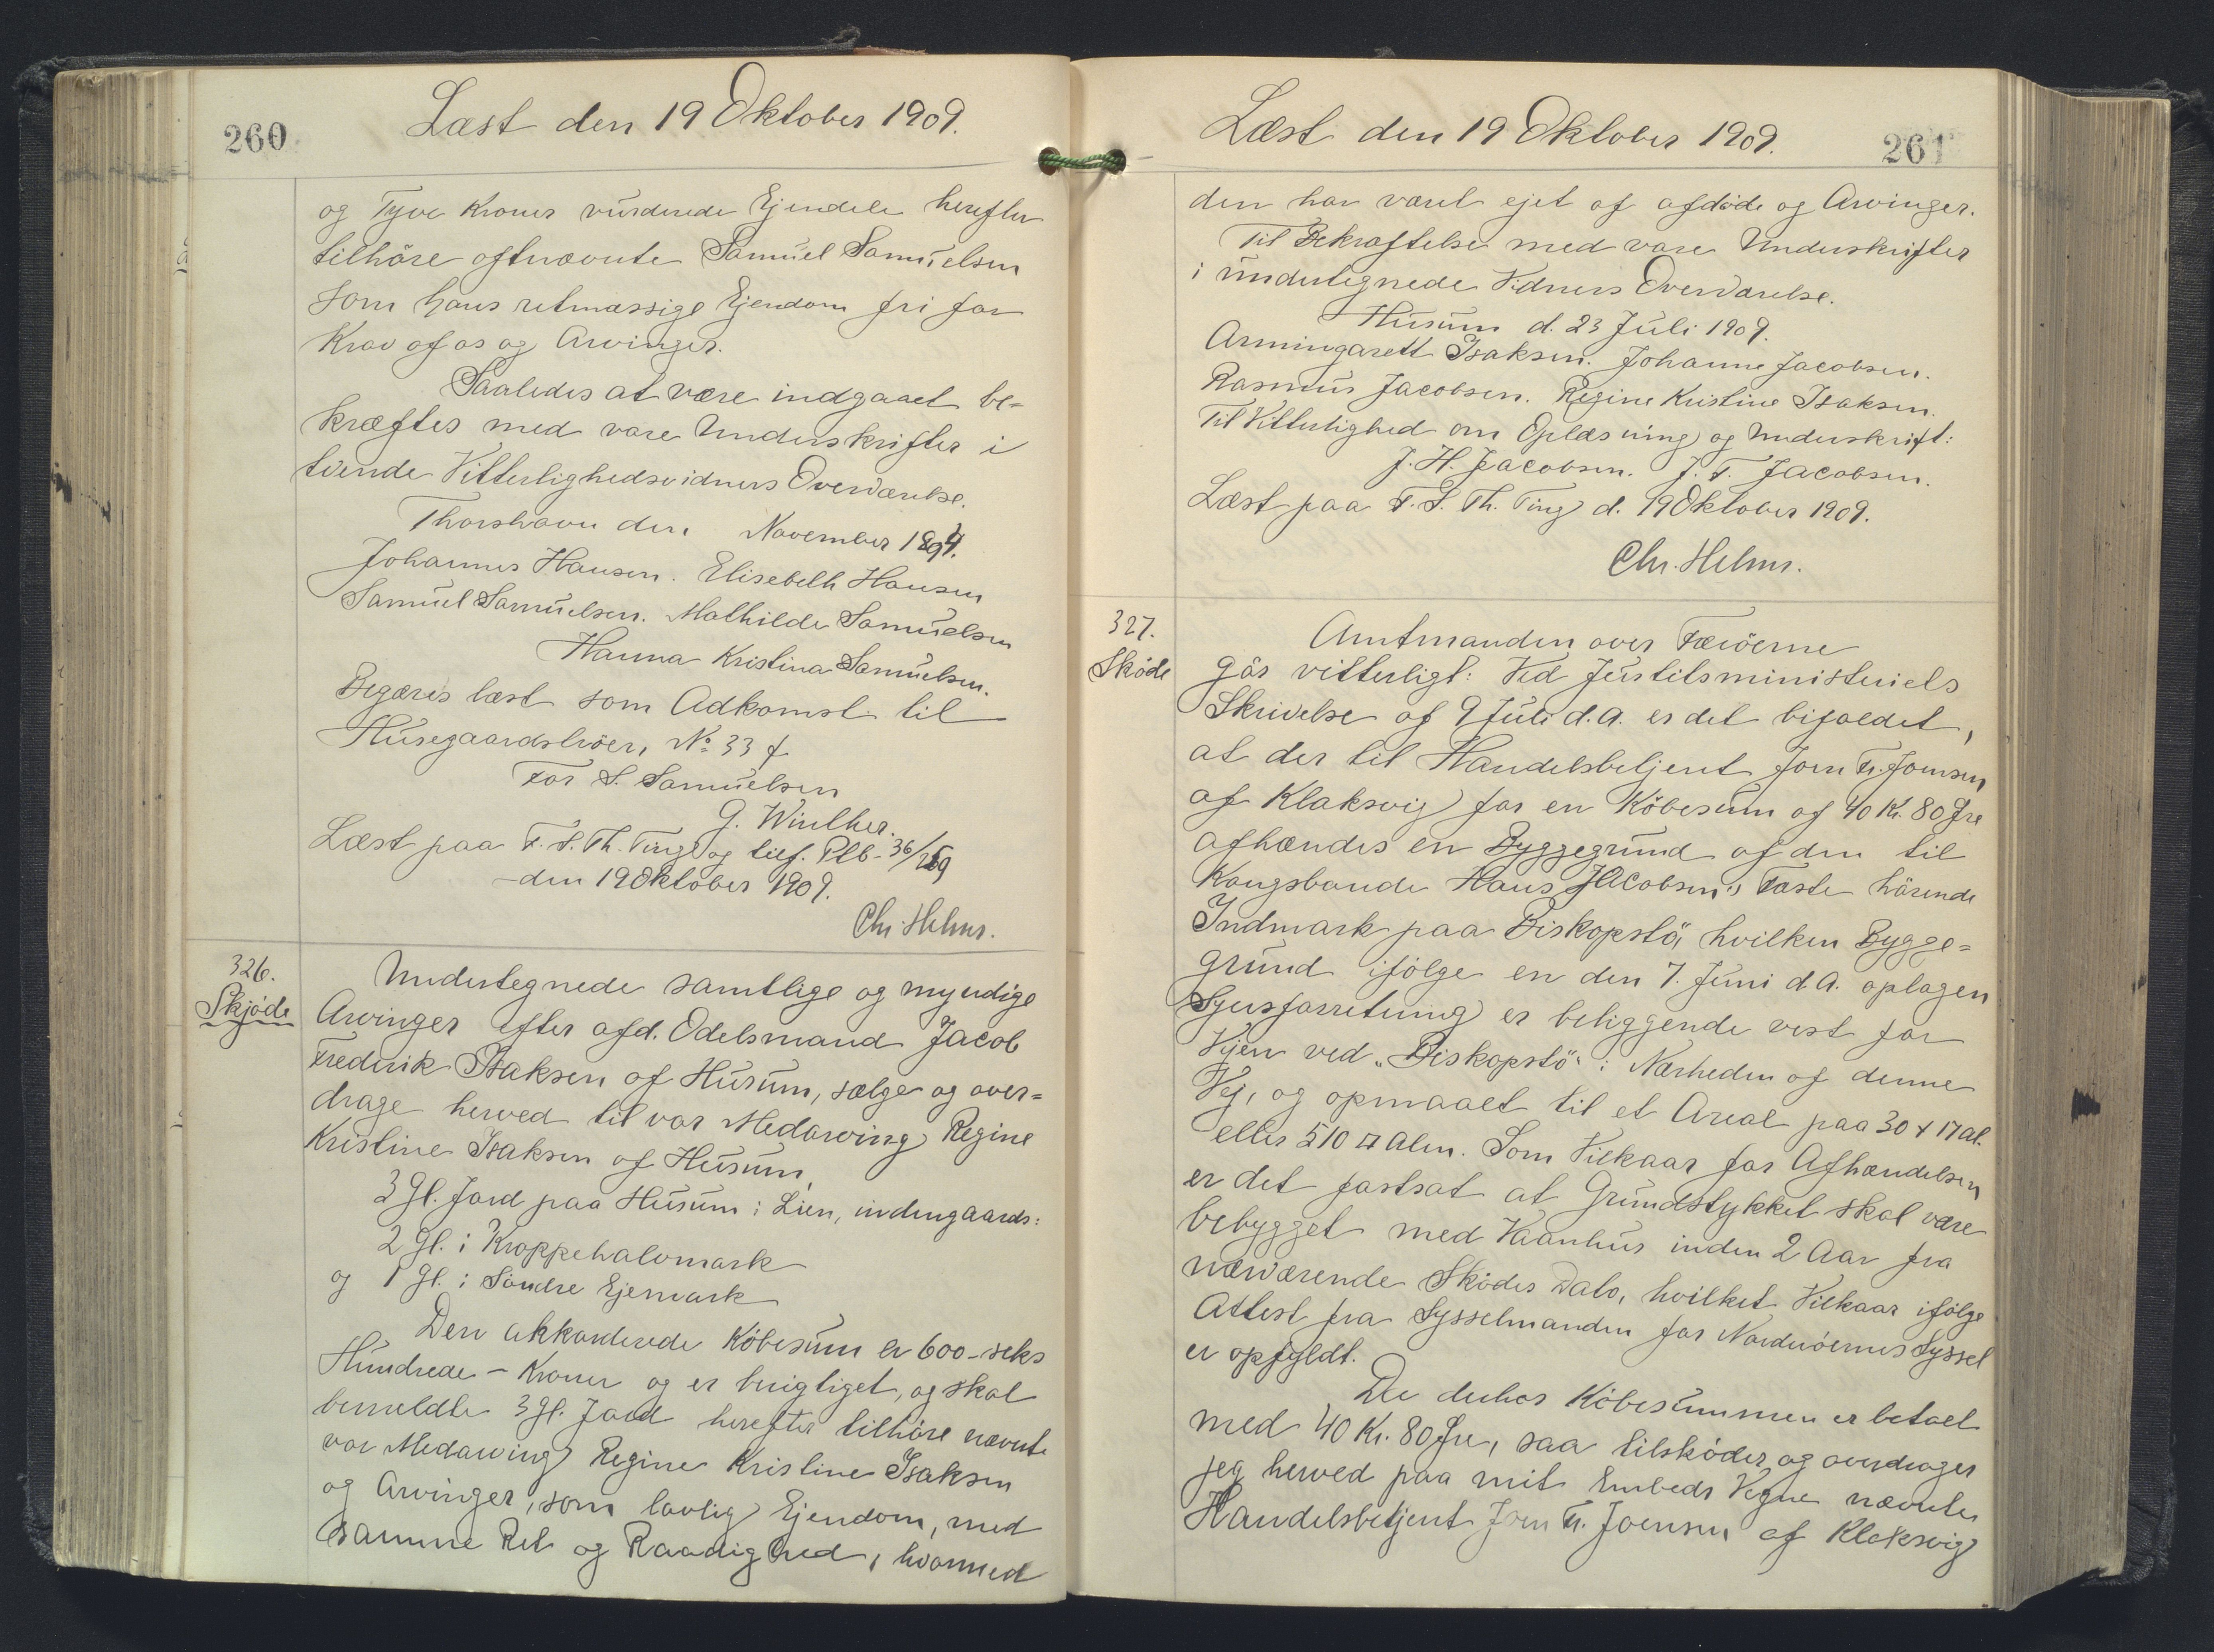 260
Læst den 19 Oktober 1909.
og Tyve Kroner vurderede Ejendele herefter
tilhöre oftnævnte Samuel Samuelsen
som hans retmæssige Ejendom fri for
Krav af os og Arvinger.
Saaledes at være indgaaet be=
kræftes med vore Underskrifter i
tvende Vitterlighedsvidners Overværelse.
Thorshavn den November 1894.
Johannes Hansen. Elisebeth Hansen
Samuel Samuelsen. Mathilde Samuelsen
Hanna Kristina Samuelsen.
Begæres læst som Adkomst til
Husegaardströer, No 33 f
For S. Samuelsen
G. Winther.
Læst paa F. S. Th. Ting og tilf. Plb. 36/269
den 19 Oktober 1909.
Chr. Helms.
326.
Skjöde
Undertegnede samtlige og myndige
Arvinger efter afd. Odelsmand Jacob
Frederik Isaksen af Husum, sælge og over=
drage herved til vor Medarving Regine
Kristine Isaksen af Husum,
3 Gl. Jord paa Husum i Lien, indengaards:
2 Gl. i Kroppehalvmark
og 1 Gl. i Söndre Ejermark
Den akkorderede Köbesum er 600 - seks
Hundrede - Kroner og er berigtiget, og skal
bemeldte 3 Gl. Jord herefter tilhöre nævnte
vor Medarving Regine Kristine Isaksen
og Arvinger, som lovlig Ejendom, med
samme Ret og Raadighed, hvormed
Læst den 19 Oktober 1909.
261
den har været ejet af afdöde og Arvinger.
Til Bekræftelse med vore Underskrifter
i undertegnede Vidners Overværelse.
Husum d. 23 Juli 1909.
Armingarett Isaksen. Johanne Jacobsen.
Rasmus Jacobsen. Regine Kristine Isaksen.
Til Vitterlighed om Oplæsning og Underskrift:
J. H. Jacobsen. J. F. Jacobsen.
Læst paa F. S. Th. Ting d. 19 Oktober 1909.
Chr. Helms.
327.
Sköde
Amtmanden over Færöerne
Gör vitterligt: Ved Justitsministeriets
Skrivelse af 9 Juli d.A. er det bifaldet,
at der til Handelsbetjent Joen Fr. Joensen
af Klaksvig for en Köbesum af 40 Kr. 80 Øre
afhændes en Byggegrund af den til
Kongsbonde Hans Jacobsen's Fæste hörende
Indmark paa Biskopstö, hvilken Bygge=
grund ifölge en den 7. Juni d.A. optagen
Synsforretning er beliggende vest for
Vejen ved "Biskopstö" i Nærheden af denne
Vej, og opmaalt til et Areal paa 30 x 17 al.
eller 510 □ Alen. Som Vilkaar for Afhændelsen
er det fastsat at Grundstykket skal være
bebygget med Vaanhus inden 2 Aar fra
nærværende Sködes Dato, hvilket Vilkaar ifölge
Attest fra Sysselmanden for Norderöernes Syssel
er opfyldt.
Da derhos Köbesummen er betalt
med 40 Kr. 80 Øre, saa tilsköder og overdrager
jeg herved paa mit Embeds Vegne nævnte
Handelsbetjent Joen Fr. Joensen af Klaksvig